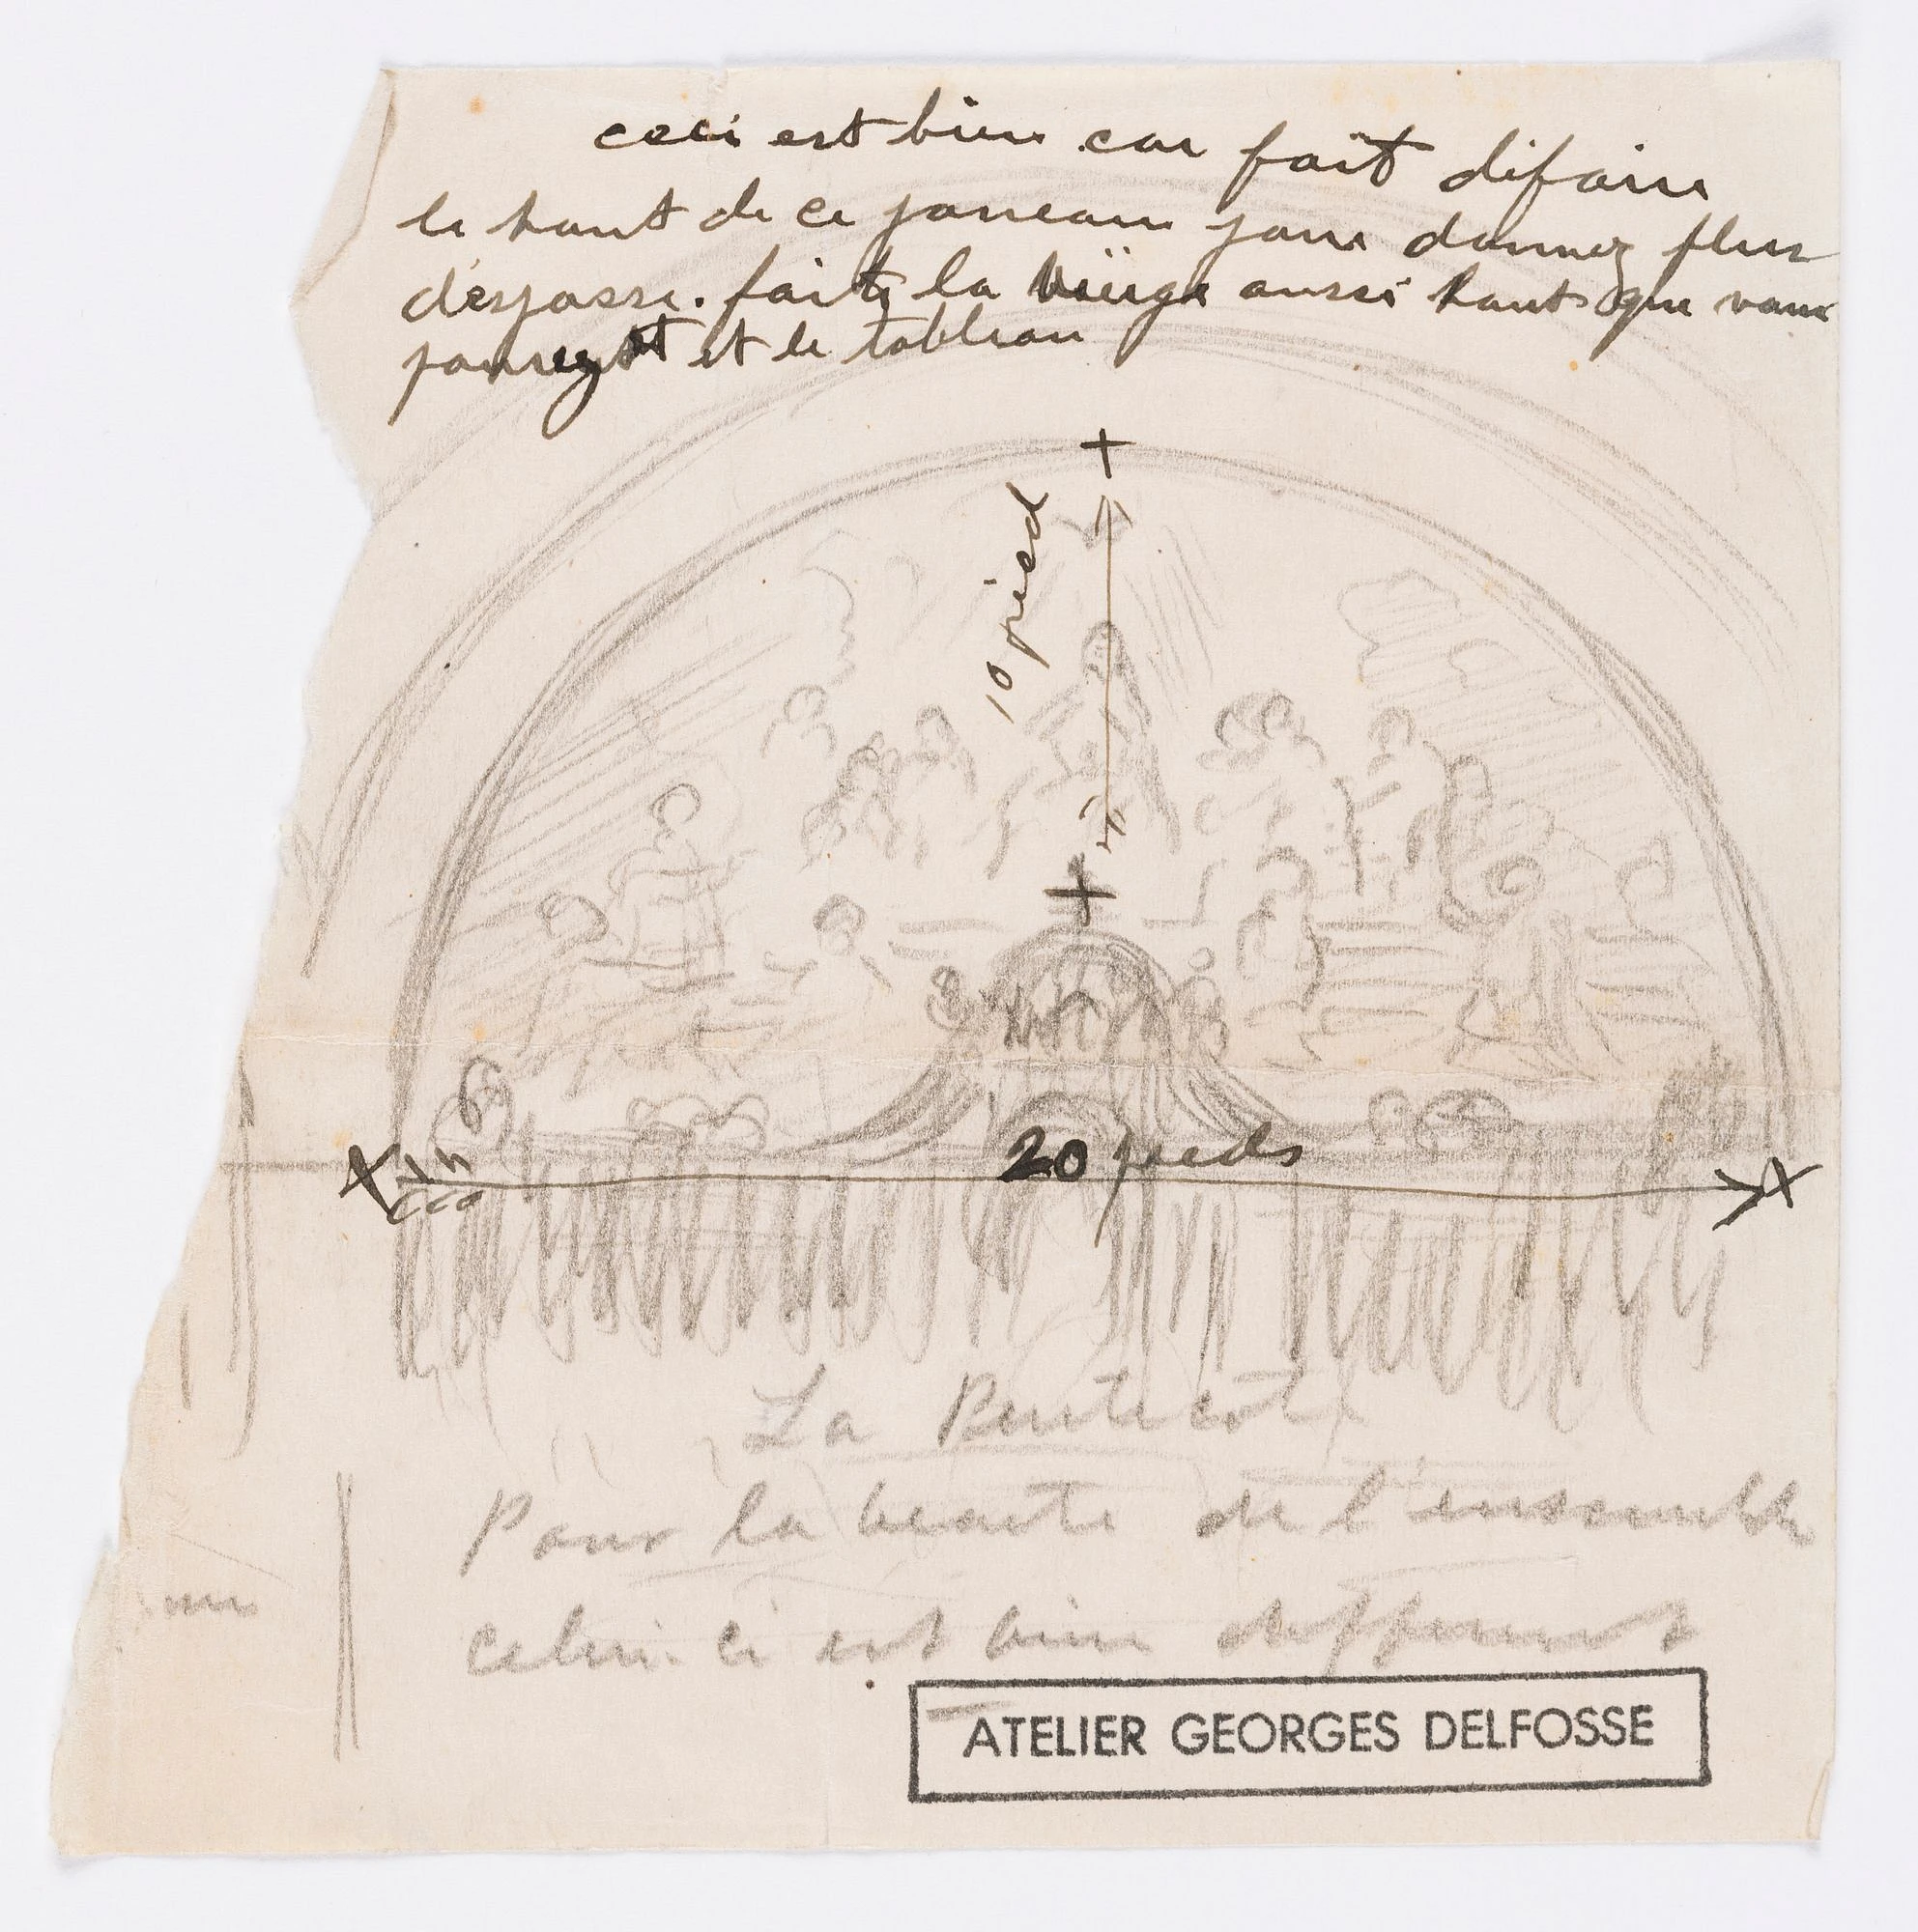 ceci est bien car fait difaire
le haut de ce panneau pour donnez plus
d'espasse. faite la vierge aussi haut que vous
pouvez et le tableau
10 pied
20 pieds
La Pentecôte
Pour la beaute de l'ensemble
celui-ci est bien different
ATELIER GEORGES DELFOSSE